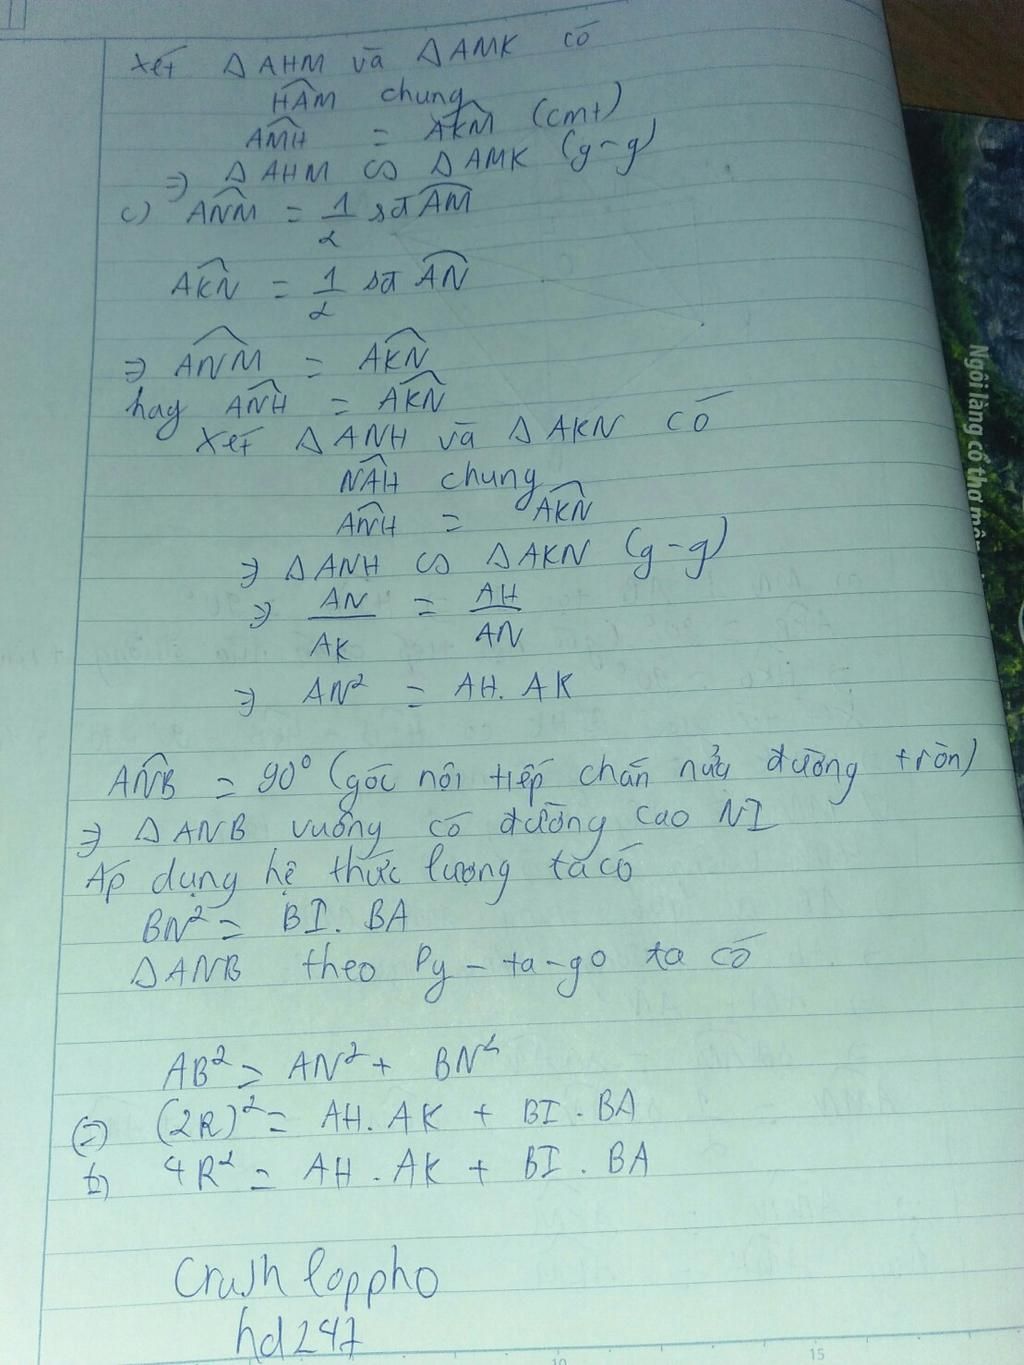 Xét Δ AHM và Δ AMK có
HAM chung
AMH = AKM (cmt)
⇒ Δ AHM ∽ Δ AMK (g-g)
c) ANM = 1/2 sđ AM
AKN = 1/2 sđ AN
⇒ ANM = AKN
hay ANH = AKN
Xét Δ ANH và Δ AKN có
NAH chung
ANH = AKN
⇒ Δ ANH ∽ Δ AKN (g-g)
⇒ AN/AK = AH/AN
⇒ AN² = AH. AK
ANB = 90° (góc nội tiếp chắn nửa đường tròn)
⇒ Δ ANB vuông có đường cao NI
Áp dụng hệ thức lượng ta có
BN² = BI. BA
Δ ANB theo Py-ta-go ta có
AB² = AN² + BN²
(=) (2R)² = AH. AK + BI. BA
4R² = AH. AK + BI. BA
Crush loppho
hd247
Ngôi làng cổ thơ mộn
10
15